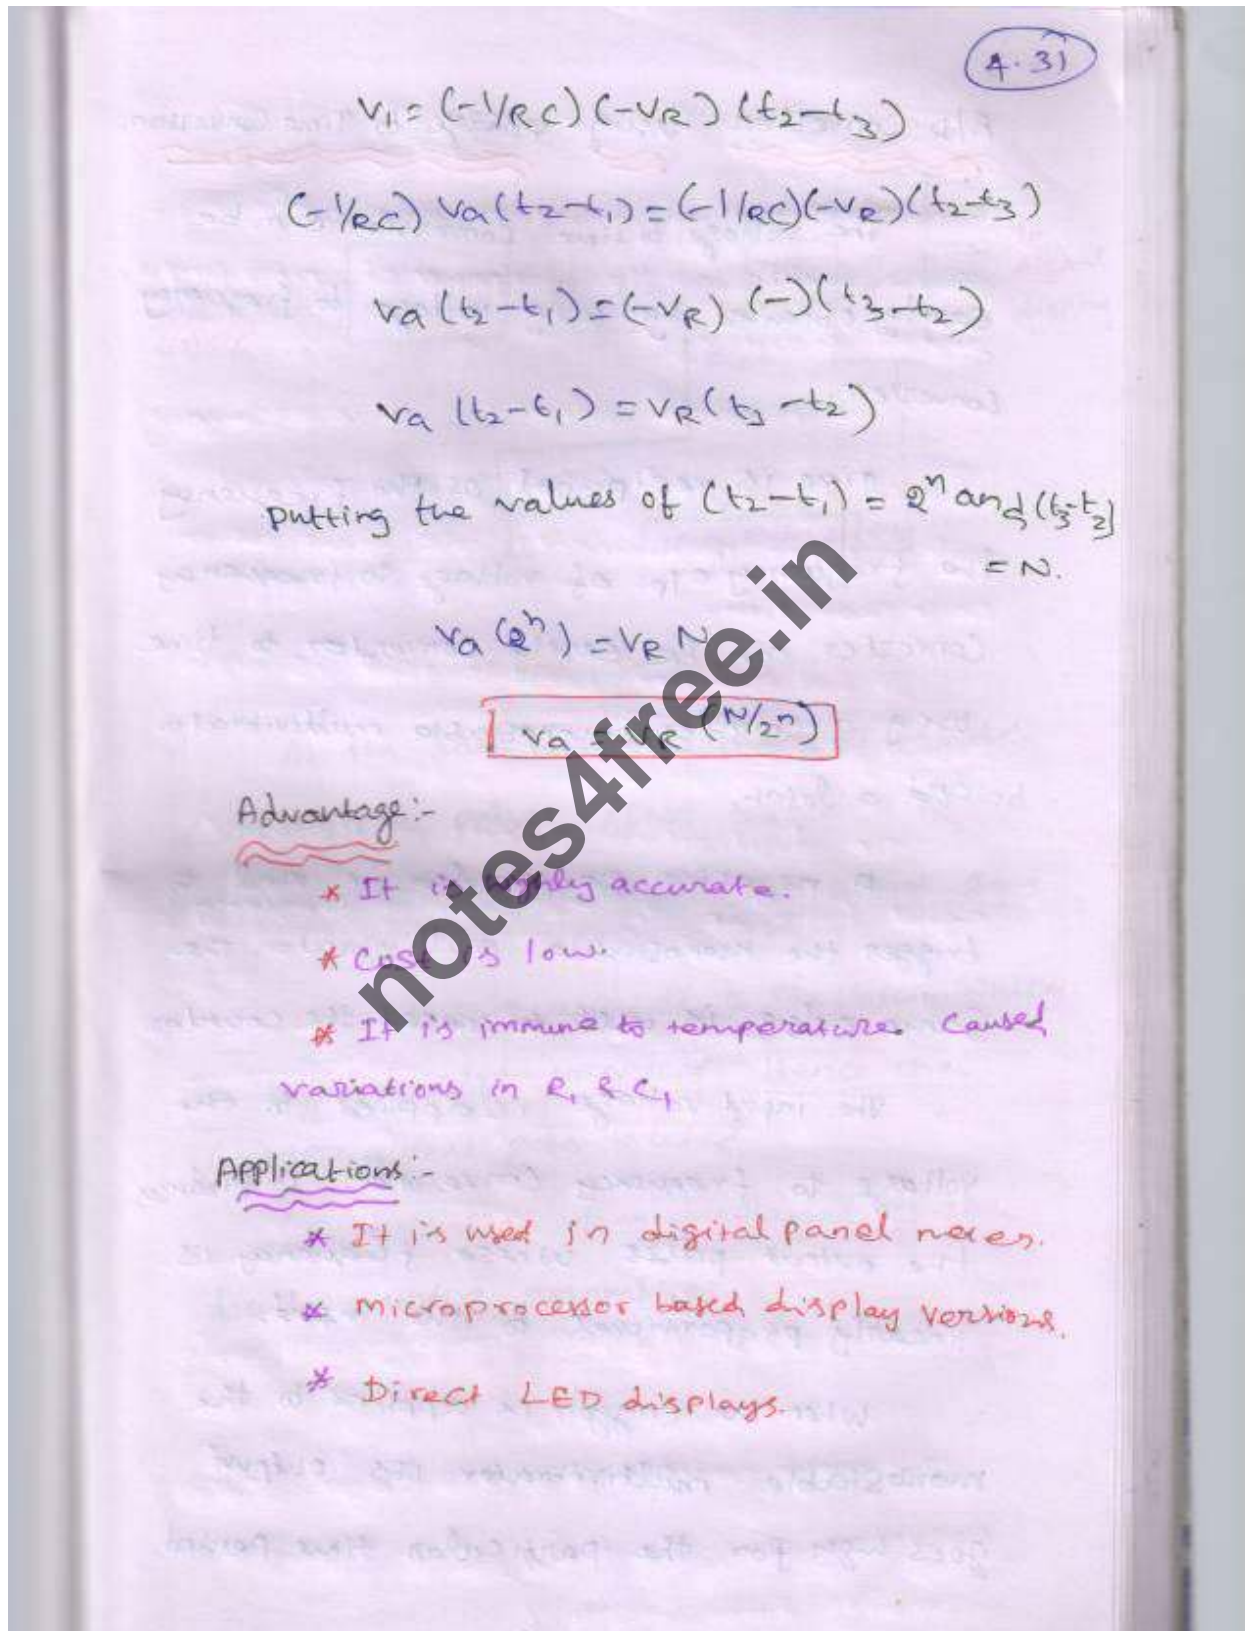 4.31
V1 = (-1/RC) (-VR) (t2-t3)
(-1/RC) Va(t2-t1) = (-1/RC)(-VR)(t2-t3)
Va (t2-t1) = (-VR) (-)(t3-t2)
Va (t2-t1) = VR(t3-t2)
Putting the values of (t2-t1) = 2^n and (t3-t2)
= N.
Va (2^n) = VR N
Va = VR (N/2^n)
Advantage:-
* It is highly accurate.
* Cost is low.
* It is immune to temperature caused
variations in R1 & C1
Applications:-
* It is used in digital panel
* Microprocessor based display versions.
* Direct LED displays.
notes4free.in